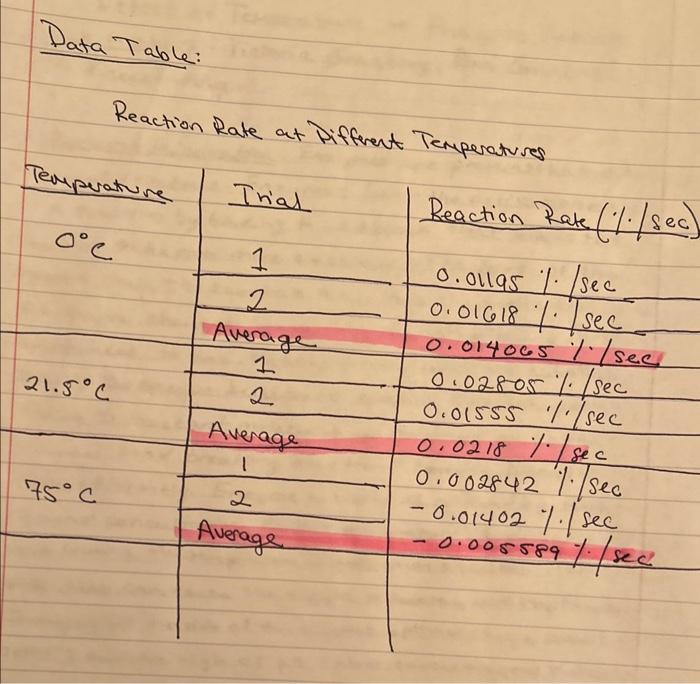 Data Table:
Reaction Rate at Different Temperatures
Temperature Trial Reaction Rate (%/sec)
0°C 1 0.01195 %/sec
2 0.01618 %/sec
Average 0.014065 %/sec
21.5°C 1 0.02805 %/sec
2 0.01555 %/sec
Average 0.0218 %/sec
75°C 1 0.002842 %/sec
2 -0.01402 %/sec
Average -0.005589 %/sec